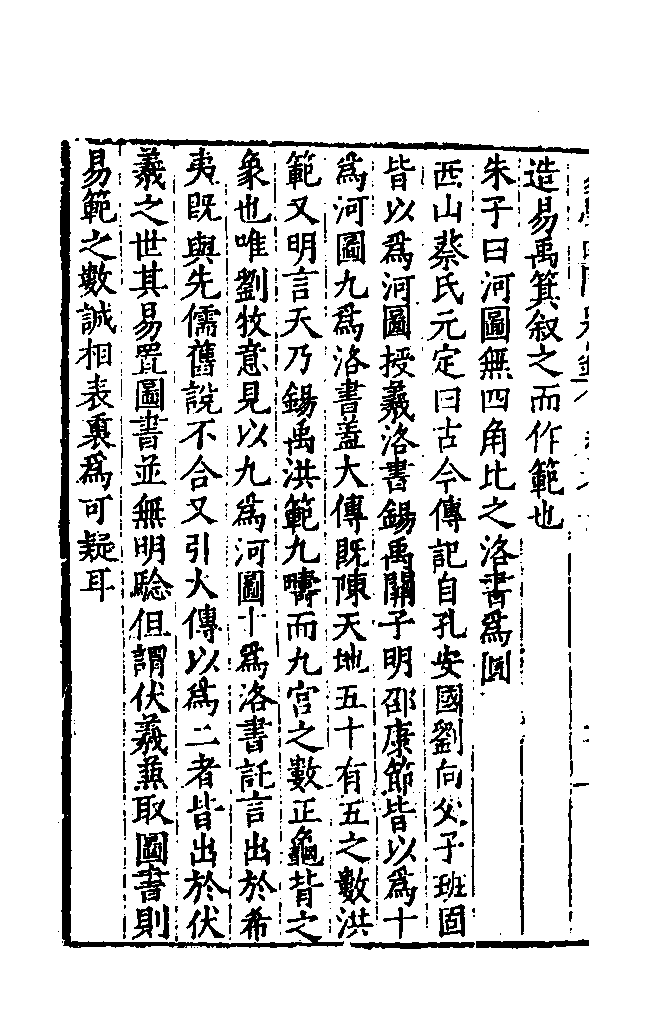 造易禹箕叙之而作範也
朱子曰河圖無四角比之洛書爲圓
西山蔡氏元定曰古今傳記自孔安國劉向父子班固
皆以爲河圖授羲洛書錫禹關子明邵康節皆以爲十
爲河圖九爲洛書盖大傳既陳天地五十有五之數洪
範又明言天乃錫禹洪範九疇而九宫之數正龜背之
象也唯劉牧意見以九爲河圖十爲洛書託言出於希
夷既與先儒舊說不合又引大傳以爲二者皆出於伏
羲之世其易置圖書並無明驗但謂伏羲兼取圖書則
易範之數誠相表裏爲可疑耳